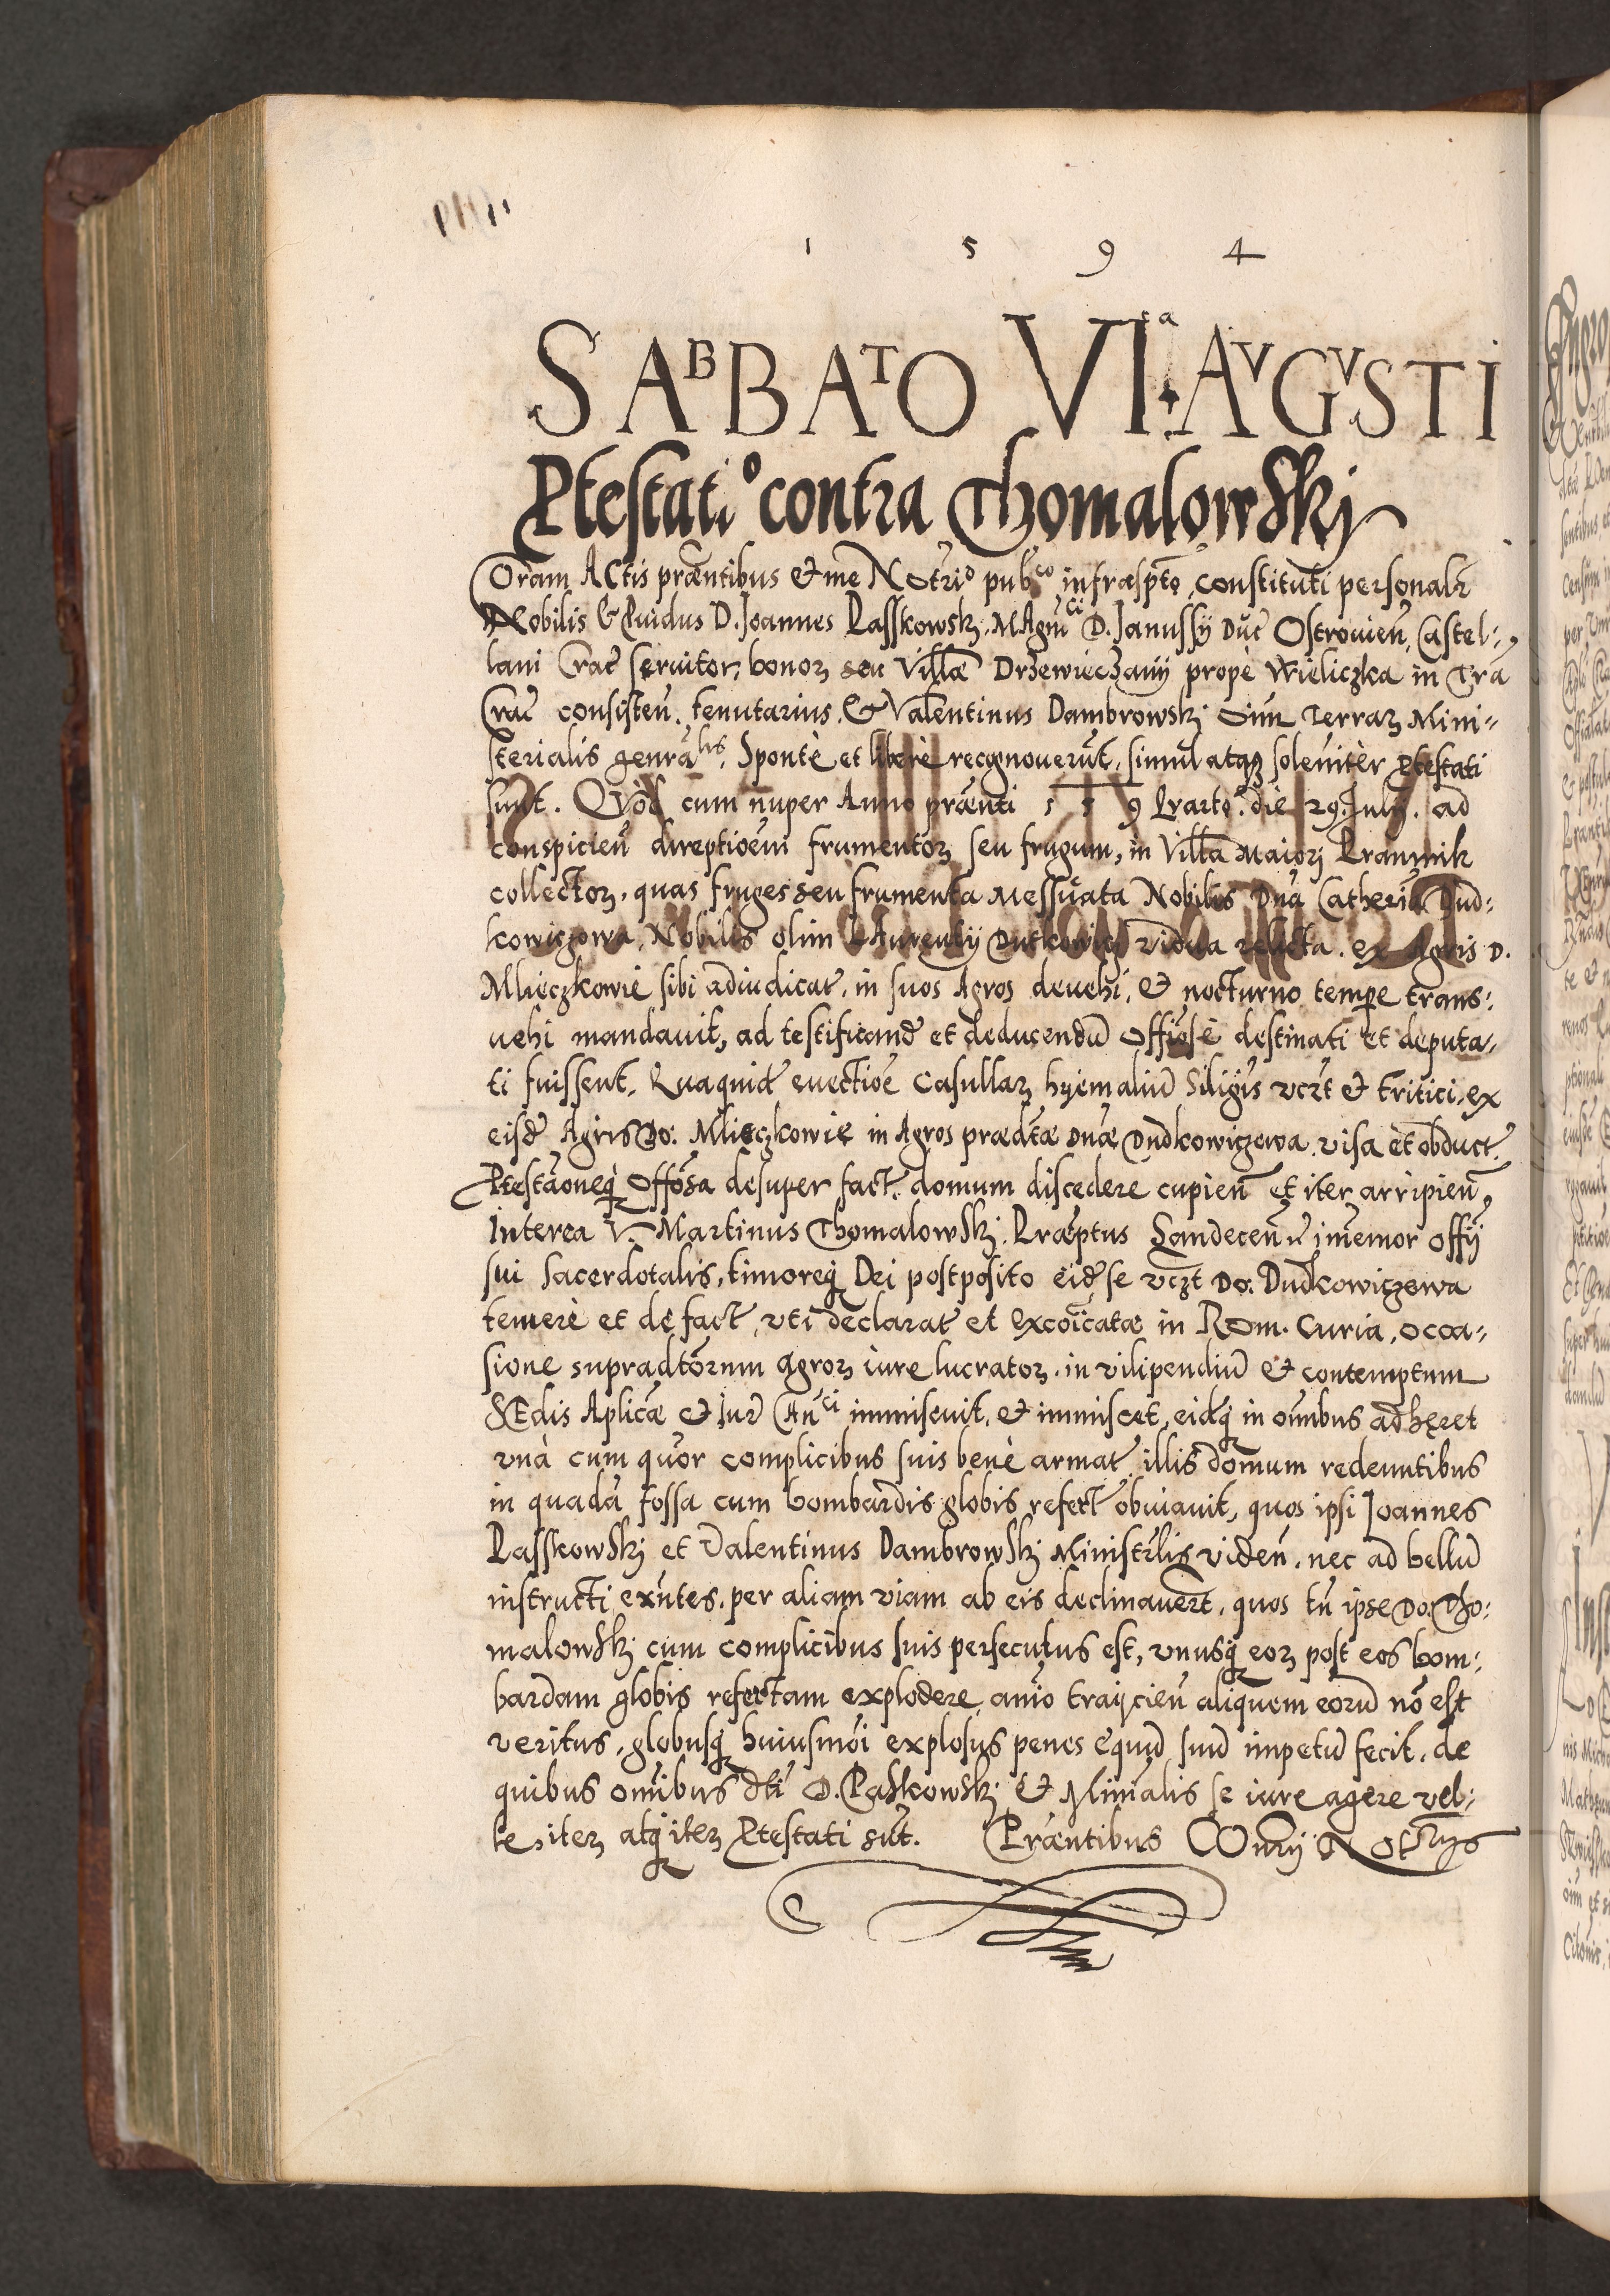 1 5 9 4
SABBATO VIa AVGVSTI
Ptestatio contra Thomalowskj
Coram Actis præntibus et me Notrio pubco infræspto, constituti personalr
Nobilis & Puidus D. Joannes Passkowskj, MAgnci D. Janussij Duc Ostrouien, Castel-
lani Crac seruitor, bonoꝝ seu Villæ Drzewieczany propè Wieliczka in Tra
Crac consisten. tenutarius, & Valentinus Dambrowskj Oim Terraꝝ Mini-
sterialis genralis, Spontè et liberè recognouerut, simul atqꝫ soleniter Ptestati
sunt. Quod cum nuper Anno prænti 1 5 9 Quarto. die 29. Julij. ad
conspicien direptioem frumentoꝝ seu frugum, in Villa Maiorj
collectoꝝ, quas fruges seu frumenta Messuata Nobilis Dna Catherina Dud-
kowiczowa, Nobilis olim LAurentij Dutkowicz vidua relicta. ex Agris D.
Mlieczkowie sibi adiudicat, in suos Agros deuehi, & nocturno tempe trans-
uehi mandauit, ad testificand et deducendu Offiose destinati et deputa-
ti fuissent, Quaquid euectioe Casullaꝝ hyemaliu Siligis vczt & tritici, ex
eisd Agris Do: Mlieczkowie in Agros prædtæ Dnæ Dudkowiczewa, visa et obduct
Ptestaoneqꝫ Offosa desuper fact. domum discedere cupien et iter arripien,
Interea V. Martinus Thomalowskj. Præptus Sandecen, imemor offij
sui Sacerdotalis, timoreqꝫ Dei postposito eid se vczt Do: Dudkowiczewa
temerè et de fact, vti declarat et excoicatæ in Rom. Curia, occa-
sione supradtorum agroꝝ iure lucratoꝝ. in vilipendiu & contemptum
SEdis Aplicæ & Jur CAnci immiscuit, & immiscet, eidqꝫ in omibus adhęret
vnà cum quor complicibus suis benè armat illis domum redeuntibus
in quada fossa cum bombardis globis refert obuiauit, quos ipsi Joannes
Passkowskj et Valentinus Dambrowskj Ministrlis viden, nec ad bellu
instructi exntes, per aliam viam ab eis declinauert, quos tn ipse Do: Tho-
malowskj cum complicibus suis persecutus est, vnusqꝫ eoꝝ post eos bom-
bardam globis refertam explodere aniο traijcien aliquem eoru no est
veritus, globusqꝫ huiusmoi explosus penes equu suu impetu fecit, de
quibus omibus dti D. Paskowskj & Minialis se iure agere vel-
le, iteꝝ atqꝫ iteꝝ Ptestati sut. Præntibus COnrij Notrijs